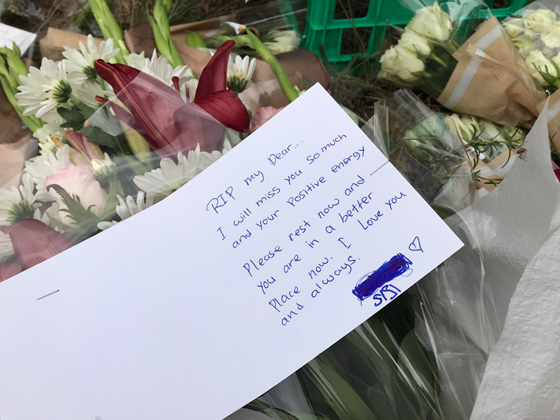 RIP my Dear...
I will miss you so much
and your Positive energy
Please rest now and
you are in a better
Place now. I Love you
and always.